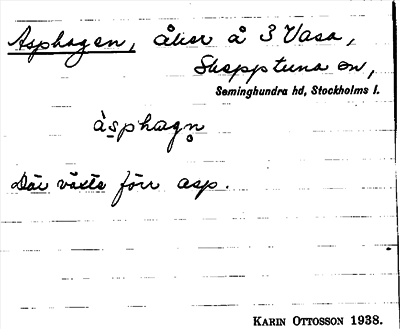 Asphagen, åker å 3 Vasa,
Skepptuna sn,
Seminghundra hd, Stockholms l.
àsphagn̥
Där växte förr asp.
KARIN OTTOSSON 1938.